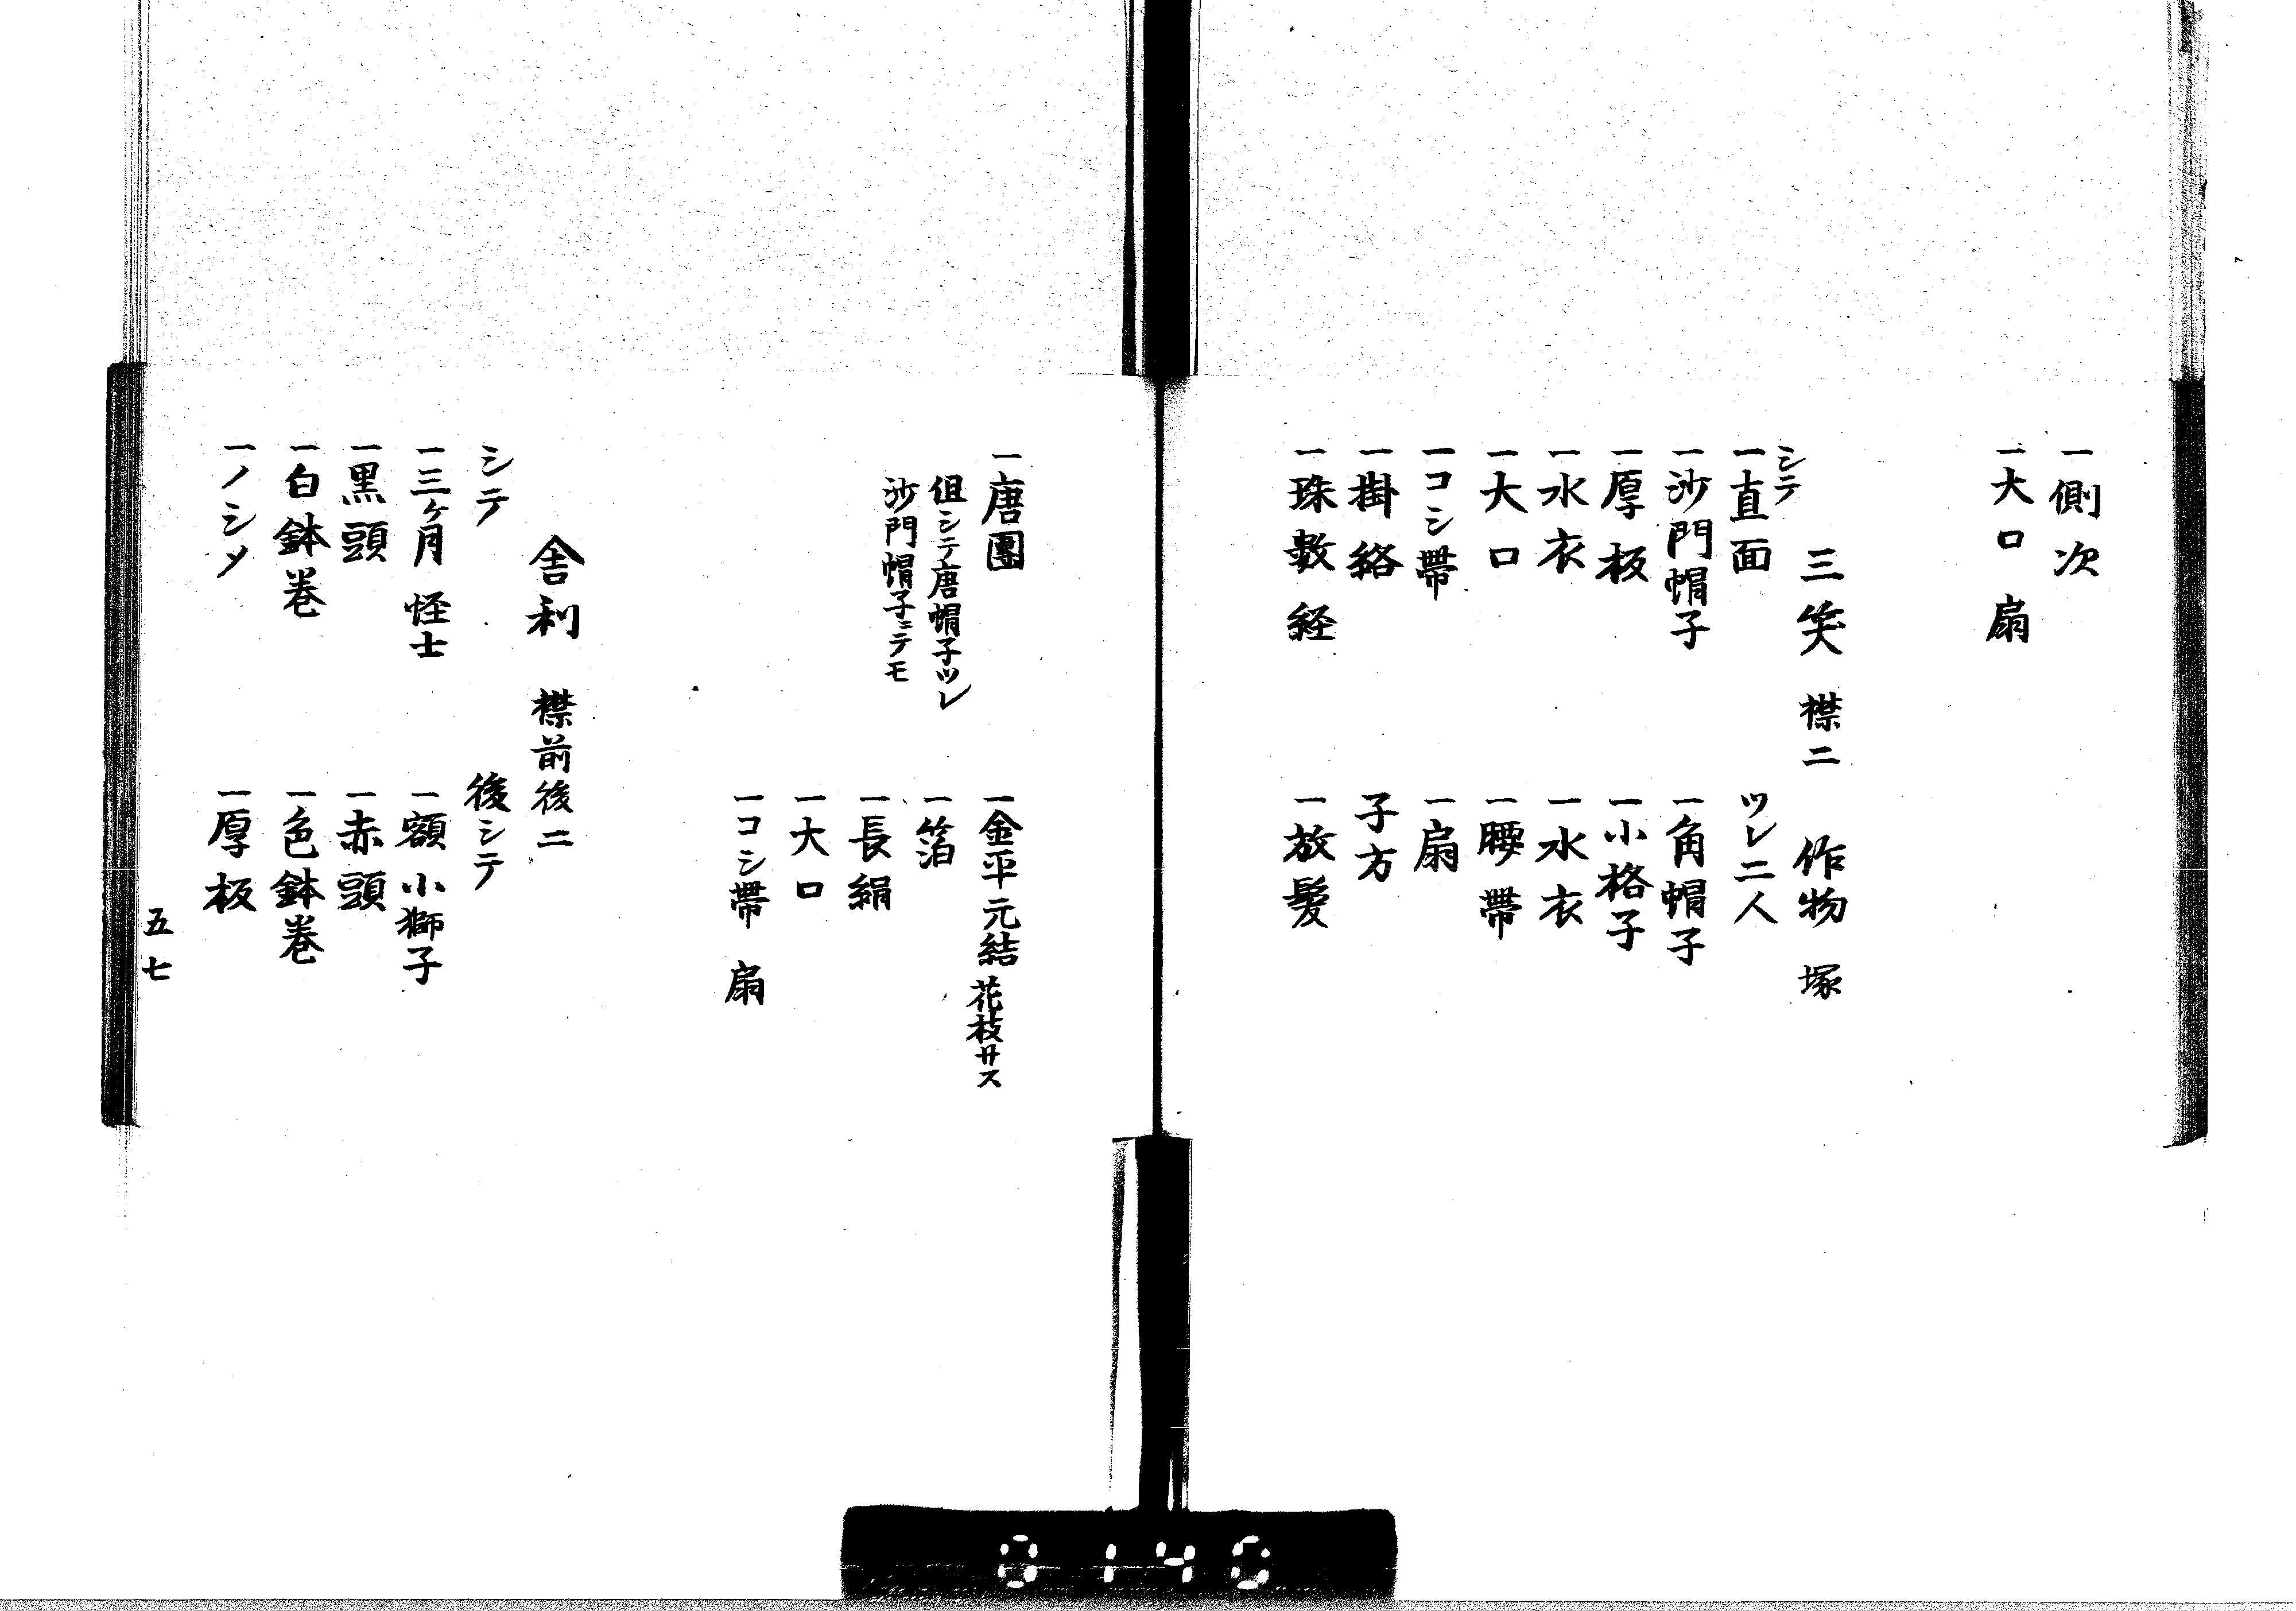 一側次
一大口 扇
三笑 襟二 作物 塚
シテ
一直面
ツレ二人
一沙門帽子
一角帽子
一厚板
一小格子
一水衣
一水衣
一大口
一腰帶
一コシ帶
一扇
一掛絡
子方
一珠数 経
一放髪
一唐團
但シテ唐帽子ツレ
沙門帽子ニテモ
一金平元結 花枝サス
一箔
一長絹
一大口
一コシ帶 扇
舎利 襟前後二
シテ
後シテ
一三ヶ月 怪士
一額 小獅子
一黒頭
一赤頭
一白鉢巻
一色鉢巻
一ノシメ
一厚板
五七
0140